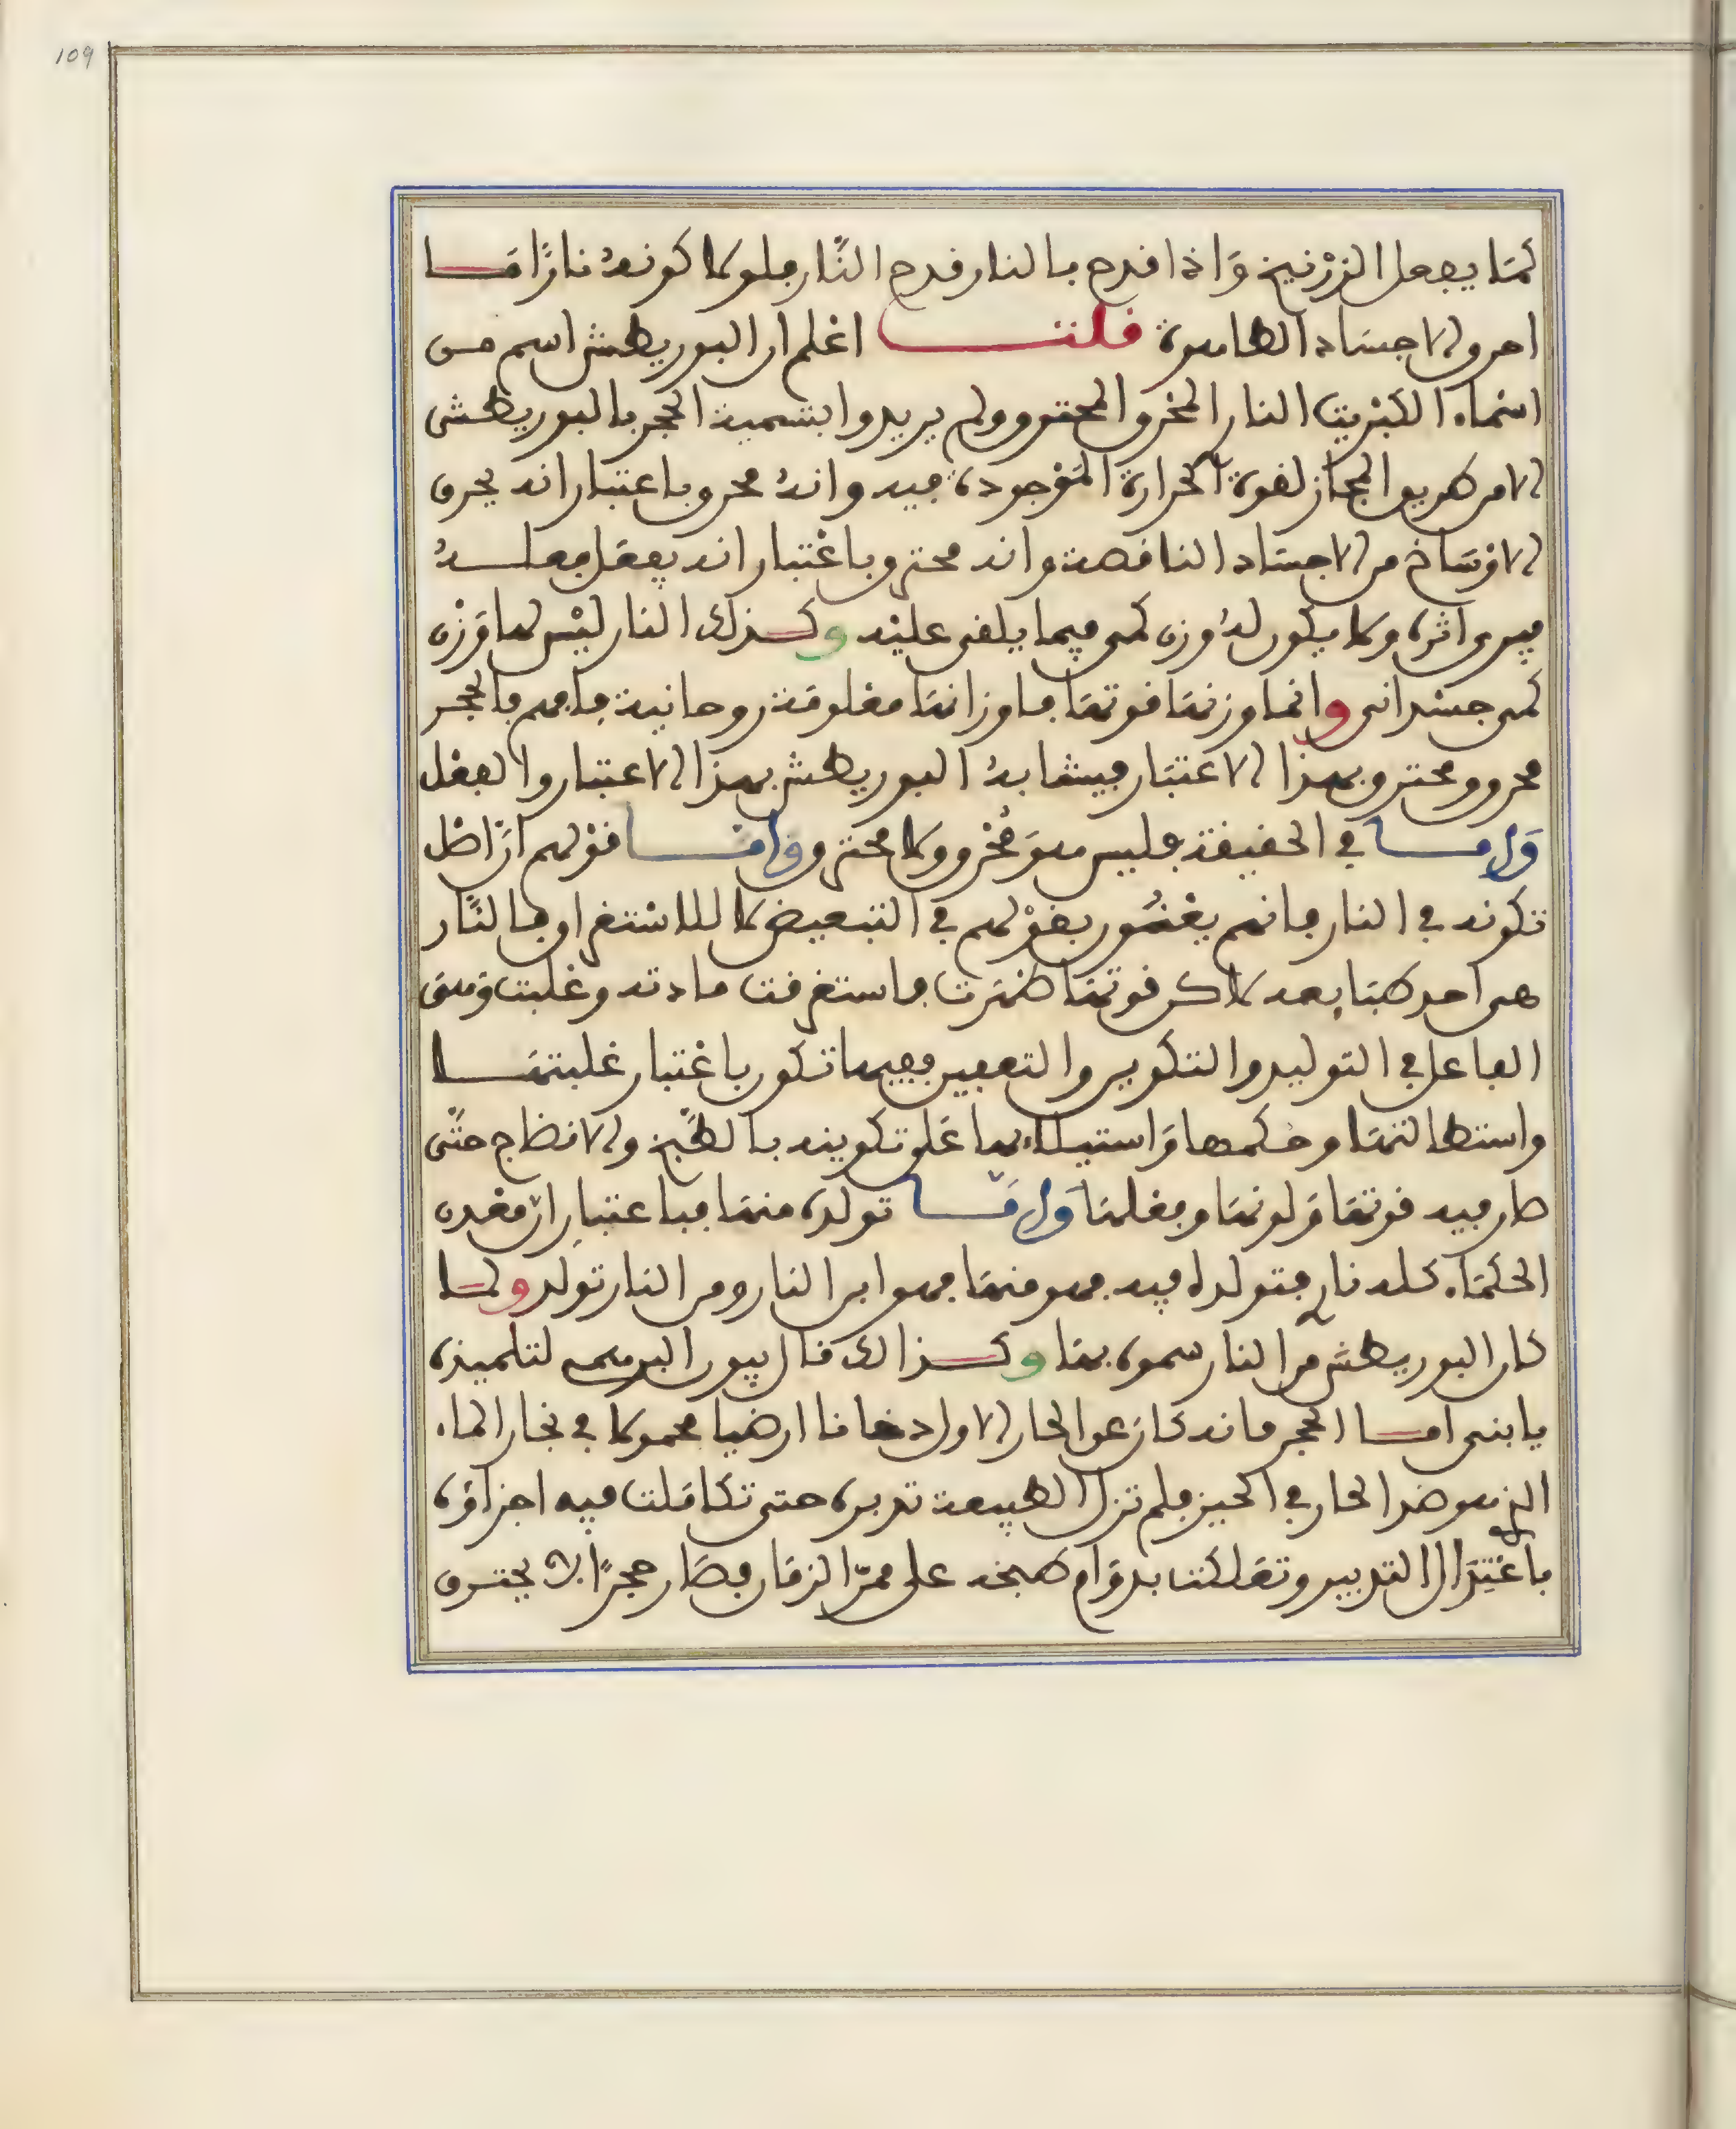 109
كما يفعل الزرنيخ واذا قدح بالنار قدح النار فلولا كونه نارا ما
احرق الاجساد الطاهرة قلت اعلم ان البوريطش اسم من
اسماء الكبريت النار المحرق المحترق ولم يريدوا بتسمية الحجر بالبوريطش
الا من طريق المجاز لقوة الحرارة الموجودة فيه وانه محرق باعتبار انه يحرق
الاوساخ من الاجساد الناقصة وانه محترق باعتبار انه يفعل فعله
فيرى اثره ولا يكون له وزن كمي فيما يلقى عليه وكذلك النار ليس لها وزن
كمي جسداني وانما وزنها قوتها باوزانها معلومة روحانية فافهم فالحجر
محرق ومحترق بهذا الاعتبار فيشابه البوريطش بهذا الاعتبار والفعل
واما في الحقيقة فليس هو محرق ولا محترق واما قولهم ان اصل
تكونه في النار فانهم يعنون بقولهم في التبعيض لا للاستغراق فالنار
هي احد طبايعه لاكن قوتها ظهرت فاستغرقت مادته وغلبت وهي
الفاعل في التوليد والتكوين والتعفين ففيها تكون باعتبار غلبتها
واستطالتها وحكمها واستيلايها على تكوينه بالطبخ والانضاج حتى
صار فيه قوتها ولونها وفعلها واما تولده منها فباعتبار ان معدن
الحكماء كله نار فتولده فيه فهو منها فهو ابن النار ومن النار تولد ولما
كان البوريطش من النار سموه بها وكذالك قال بيون البرهمي لتلميذه
يا بني اما الحجر فانه كان عن الحار الاول دخانا ارضيا محمولا في بخار الماء
الذي هو ضد الحار في الحيز فلم تزل الطبيعة تدبره حتى تكاملت فيه اجزاؤه
باعتدال التدبير وتمكنت بدوام طبخه على ممر الزمان فصار حجرا لا يحترق